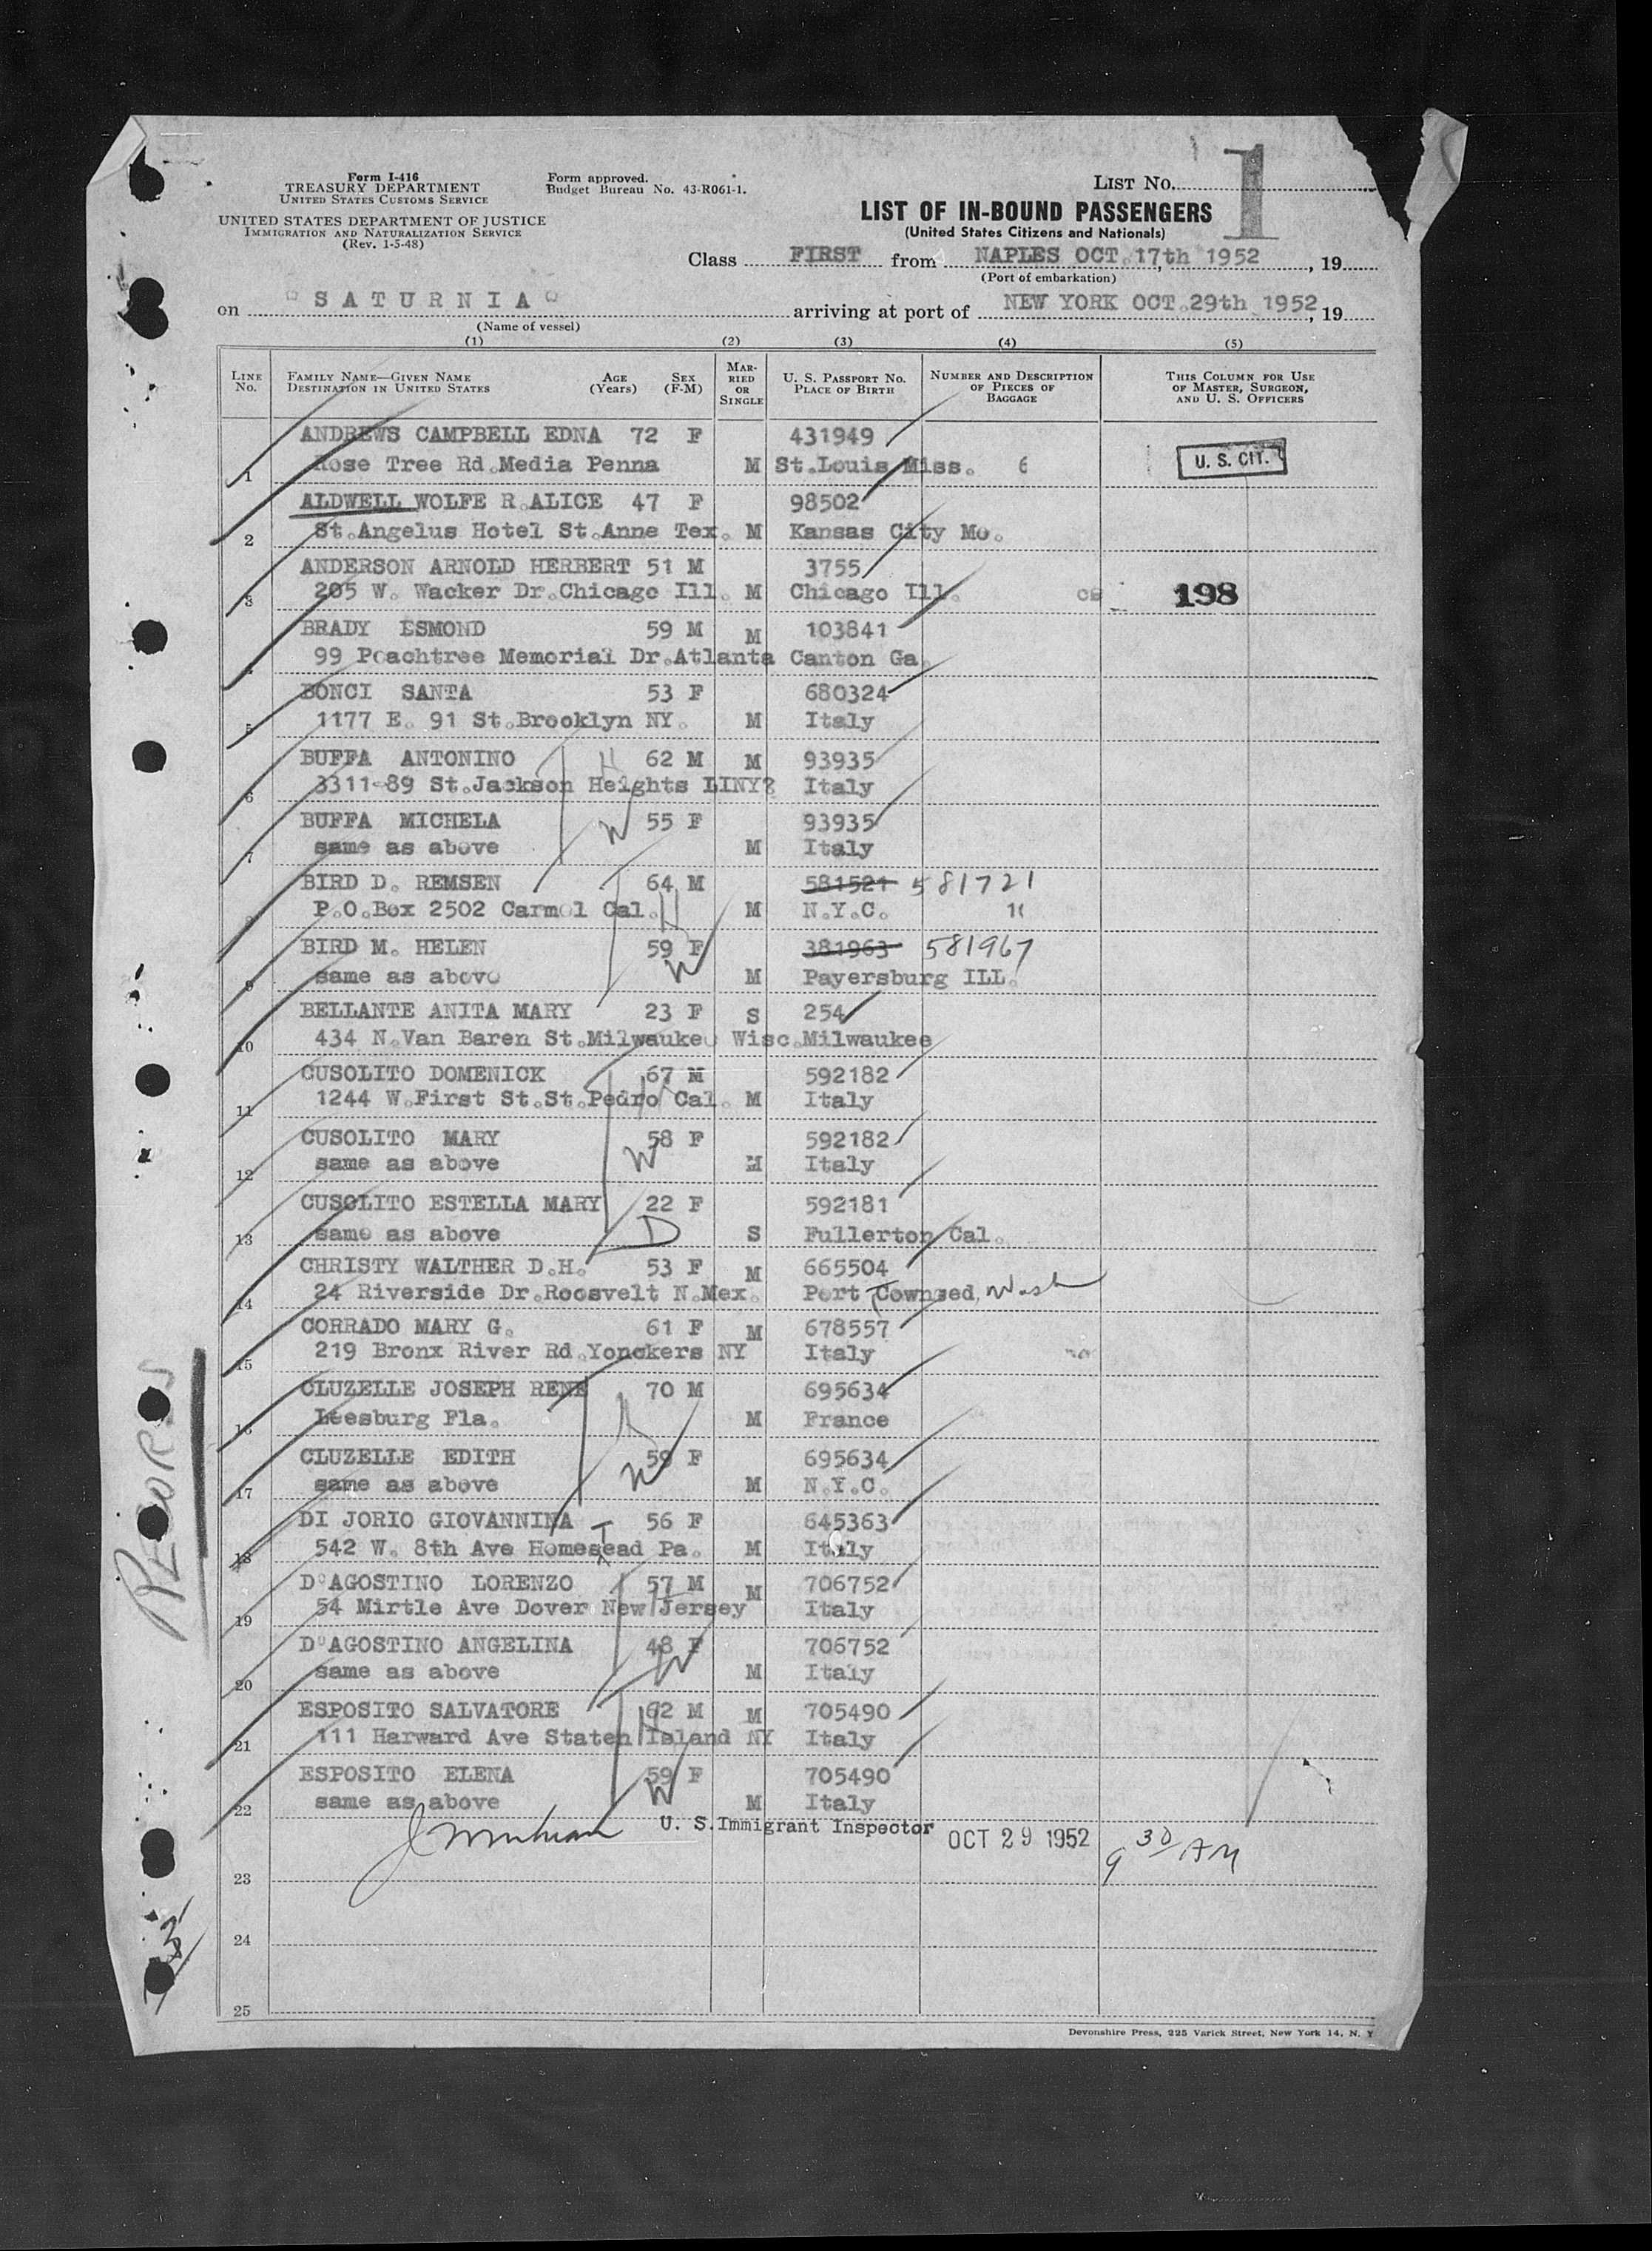 Form I-416
TREASURY DEPARTMENT
UNITED STATES CUSTOMS SERVICE
UNITED STATES DEPARTMENT OF JUSTICE
IMMIGRATION AND NATURALIZATION SERVICE
(Rev. 1-5-48)
Form approved.
Budget Bureau No. 43-R061-1.
LIST NO. 1
LIST OF IN-BOUND PASSENGERS
(United States Citizens and Nationals)
Class FIRST from NAPLES OCT.17th 1952, 19
(Port of embarkation)
on "SATURNIA" arriving at port of NEW YORK OCT.29th 1952, 19
(Name of vessel)
(1) (2) (3) (4) (5)
LINE NO. FAMILY NAME—GIVEN NAME DESTINATION IN UNITED STATES AGE (Years) SEX (F-M) MARRIED OR SINGLE U. S. PASSPORT NO. PLACE OF BIRTH NUMBER AND DESCRIPTION OF PIECES OF BAGGAGE THIS COLUMN FOR USE OF MASTER, SURGEON, AND U. S. OFFICERS
ANDREWS CAMPBELL EDNA 72 F 431949
1 Rose Tree Rd.Media Penna M St.Louis Miss. 6 U. S. CIT.
ALDWELL WOLFE R.ALICE 47 F 98502
2 St.Angelus Hotel St.Anne Tex. M Kansas City Mo.
ANDERSON ARNOLD HERBERT 51 M 3755
3 205 W. Wacker Dr.Chicago Ill. M Chicago Ill. 198
BRADY ESMOND 59 M M 103841
4 99 Peachtree Memorial Dr.Atlanta Canton Ga.
BONCI SANTA 53 F 680324
5 1177 E. 91 St.Brooklyn NY. M Italy
BUFFA ANTONINO H 62 M M 93935
6 3311-89 St.Jackson Heights LINY? Italy
BUFFA MICHELA W 55 F 93935
7 same as above M Italy
BIRD D. REMSEN 64 M 581521 581721
8 P.O.Box 2502 Carmel Cal. H M N.Y.C.
BIRD M. HELEN 59 F 381963 581967
9 same as above W M Payersburg ILL.
BELLANTE ANITA MARY 23 F S 254
10 434 N.Van Baren St.Milwaukee Wisc.Milwaukee
CUSOLITO DOMENICK 67 M 592182
11 1244 W.First St.St.Pedro Cal. H M Italy
CUSOLITO MARY 58 F 592182
12 same as above W M Italy
CUSOLITO ESTELLA MARY 22 F 592181
13 same as above D S Fullerton Cal.
CHRISTY WALTHER D.H. 53 F M 665504
14 24 Riverside Dr.Roosvelt N.Mex. Port Townsed, Wash
CORRADO MARY G. 61 F M 678557
15 219 Bronx River Rd.Yonckers NY Italy
CLUZELLE JOSEPH RENE 70 M 695634
16 Leesburg Fla. H M France
CLUZELLE EDITH 59 F 695634
17 same as above W M N.Y.C.
DI JORIO GIOVANNINA 56 F 645363
18 542 W. 8th Ave Homesead Pa. M Italy
D'AGOSTINO LORENZO 57 M M 706752
19 54 Mirtle Ave Dover New Jersey H Italy
D'AGOSTINO ANGELINA 48 F 706752
20 same as above W M Italy
ESPOSITO SALVATORE 62 M M 705490
21 111 Harward Ave Staten Island NY H Italy
ESPOSITO ELENA 59 F 705490
22 same as above W M Italy
U. S.Immigrant Inspector OCT 29 1952 9 30 AM
23
24
25
Devonshire Press, 225 Varick Street, New York 14, N. Y